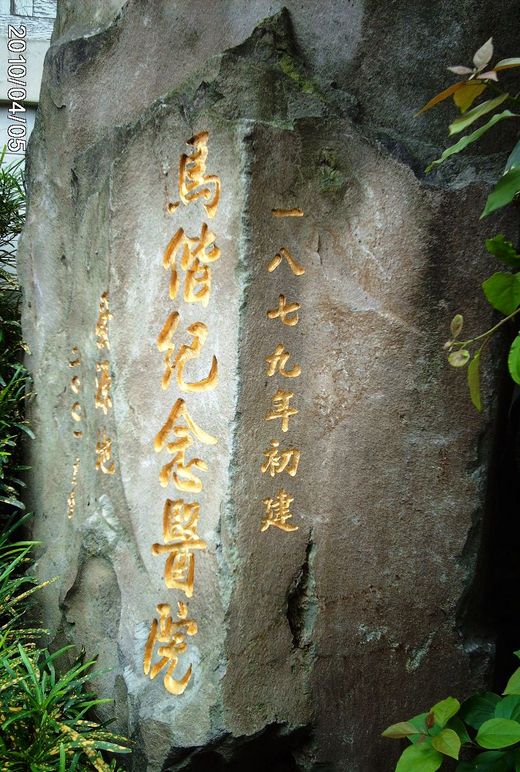 一八七九年初建
馬偕紀念醫院
2010/04/05